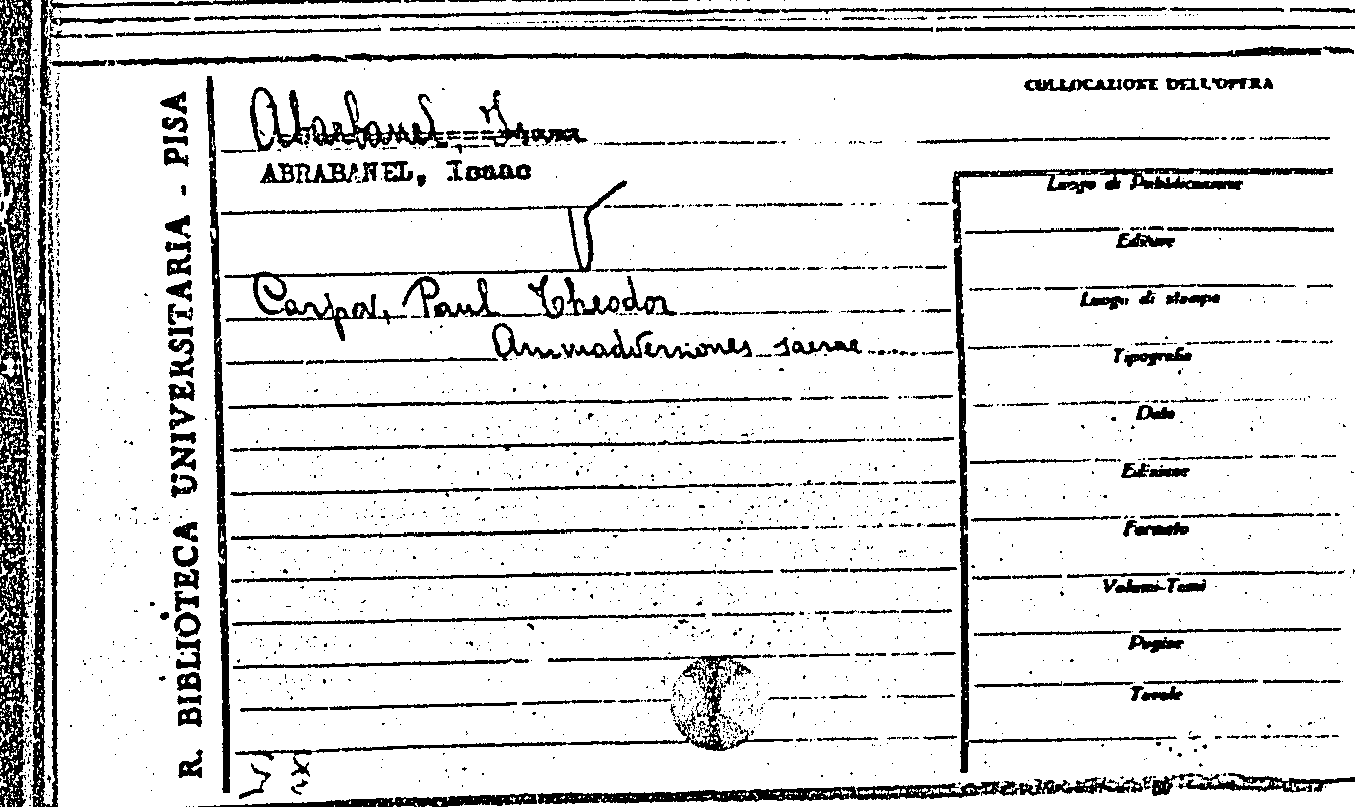 R. BIBLIOTECA UNIVERSITARIA - PISA
COLLOCAZIONE DELL'OPERA
Abarbanel, Isaac
ABRABANEL, Isaac
V
Carpov, Paul Theodor
Animadversiones sacrae....
Luogo di Pubblicazione
Editore
Luogo di stampa
Tipografia
Data
Edizione
Formato
Volumi-Tomi
Pagine
Tavole